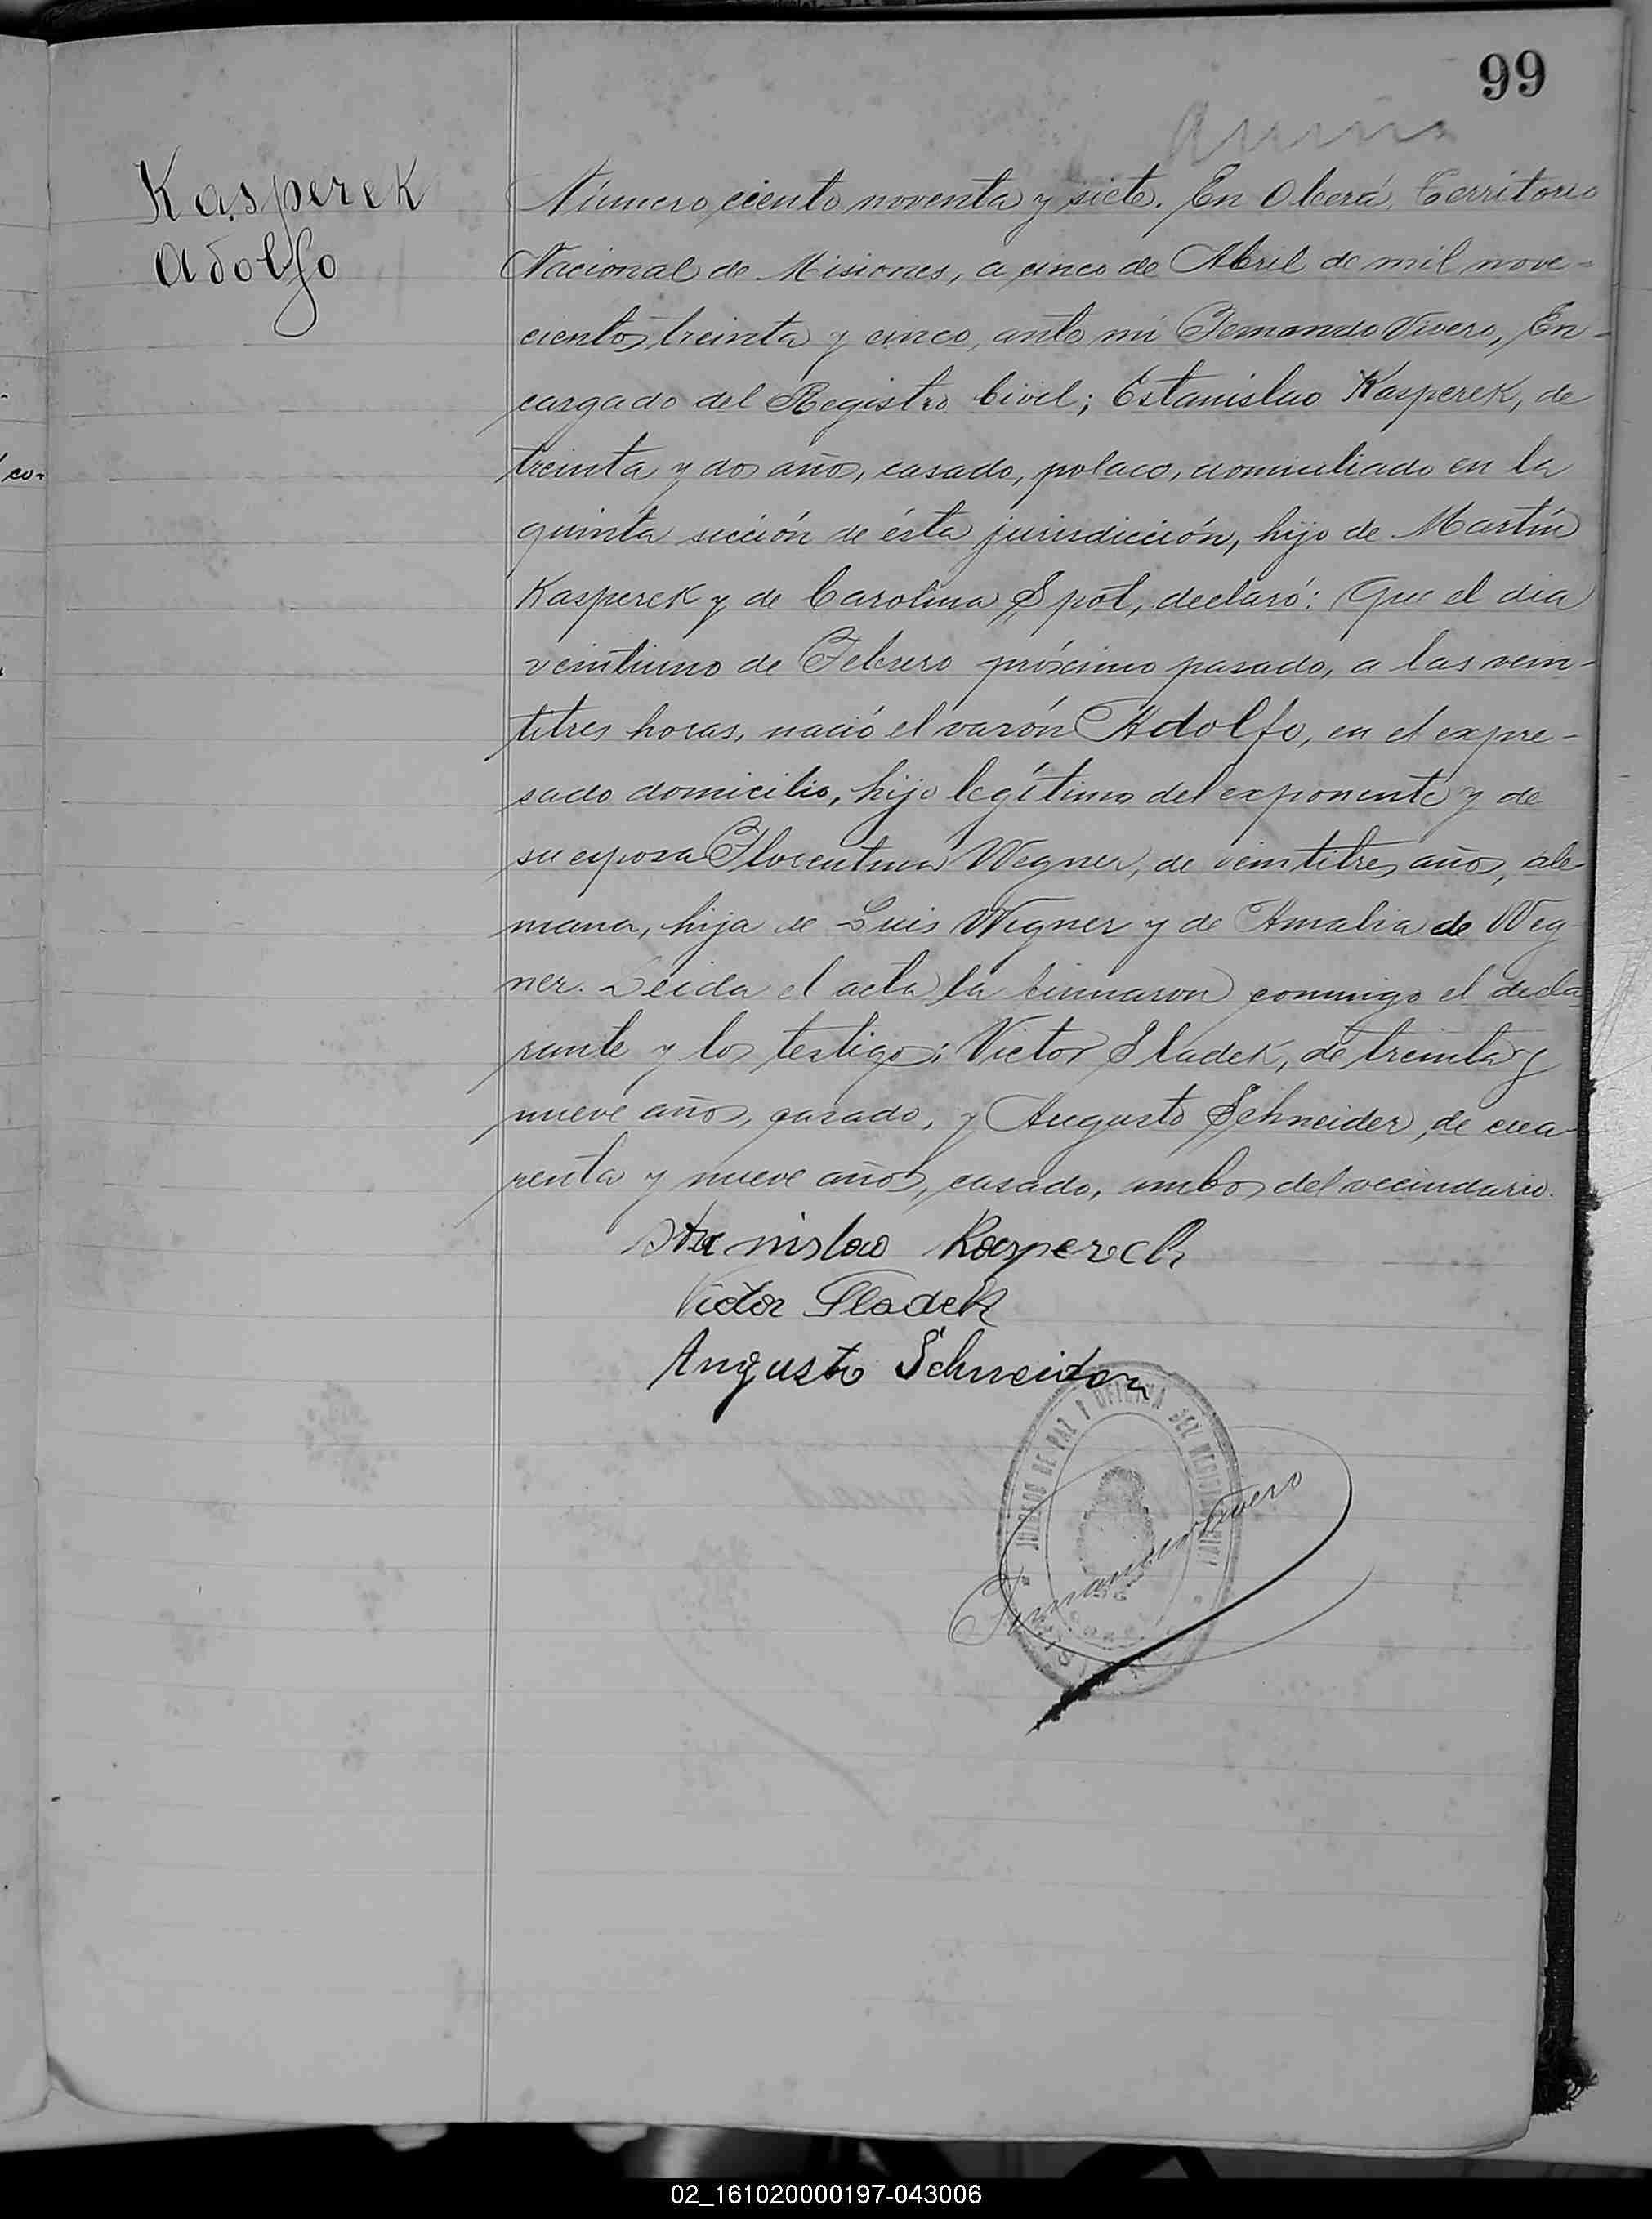 99
Kasperek
Adolfo
Número ciento noventa y siete. En Oberá, Territorio
Nacional de Misiones, a cinco de Abril de mil nove-
cientos treinta y cinco, ante mí Fernando Vivero, En-
cargado del Registro Civil; Estanislao Kasperek, de
treinta y dos años, casado, polaco, domiciliado en la
quinta sección de ésta jurisdicción, hijo de Martín
Kasperek y de Carolina Spot, declaró: Que el dia
veintiuno de Febrero próximo pasado, a las vein-
titres horas, nació el varón Adolfo, en el expre-
sado domicilio, hijo legítimo del exponente y de
su esposa Florentina Wegner, de veintitres años, ale-
mana, hija de Luis Wegner y de Amalia de Weg
ner. Leida el acta la firmaron conmigo el decla-
rante y los testigos: Victor Sladek, de treinta y
nueve años, casado, y Augusto Schneider, de cua-
renta y nueve años, casado, ambos del vecindario.
Stanislao Kasperech
Victor Sladek
Augusto Schneider
JUZGADO DE PAZ Y OFICINA DEL REGISTRO CIVIL
Fernando Vivero
02_161020000197-043006